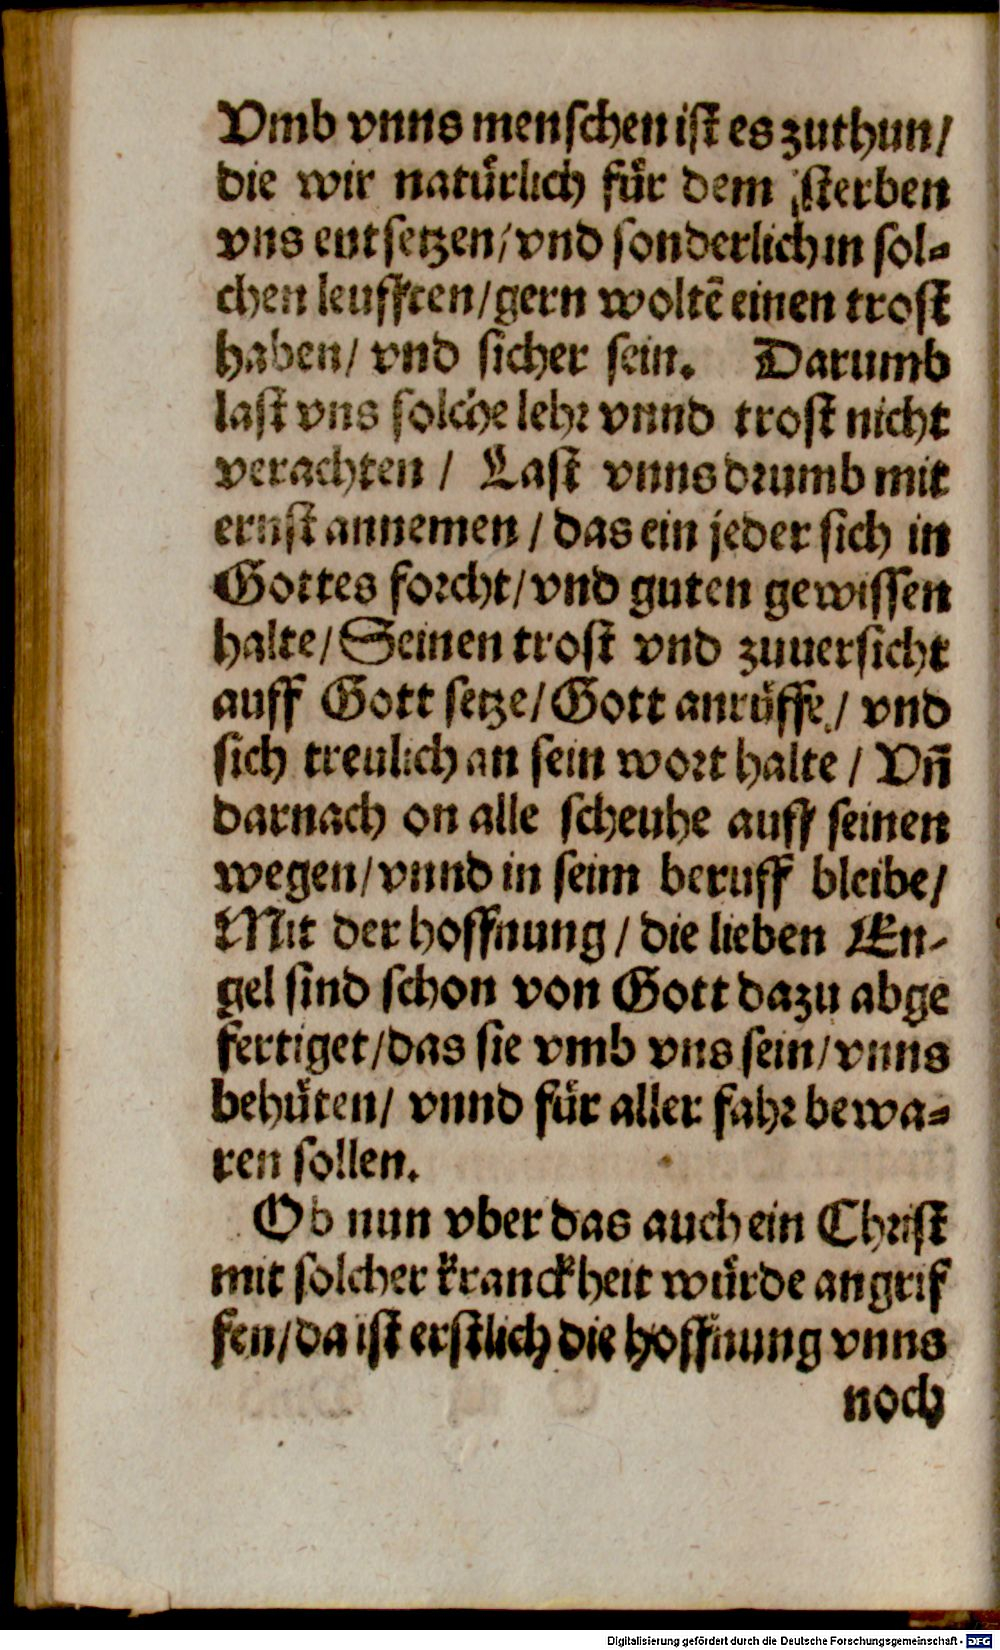 Vmb vnns menschen ist es zuthun/
die wir natuͤrlich fuͤr dem sterben
vns entsetzen/vnd sonderlich in sol⸗
chen leufften/gern woltē einen trost
haben/ vnd sicher sein. Darumb
last vns solche lehr vnnd trost nicht
verachten / Last vnns drumb mit
ernst annemen / das ein jeder sich in
Gottes forcht/vnd guten gewissen
halte/Seinen trost vnd zuuersicht
auff Gott setze/Gott anruͤffe/ vnd
sich treulich an sein wort halte / Vn̄
darnach on alle scheuhe auff seinen
wegen/vnnd in seim beruff bleibe/
Mit der hoffnung / die lieben En⸗
gel sind schon von Gott dazu abge
fertiget/das sie vmb vns sein/vnns
behuͤten/ vnnd fuͤr aller fahr bewa⸗
ren sollen.
Ob nun vber das auch ein Christ
mit solcher kranckheit wuͤrde angrif
fen/da ist erstlich die hoffnung vnns
noch
Digitalisierung gefördert durch die Deutsche Forschungsgemeinschaft - DFG